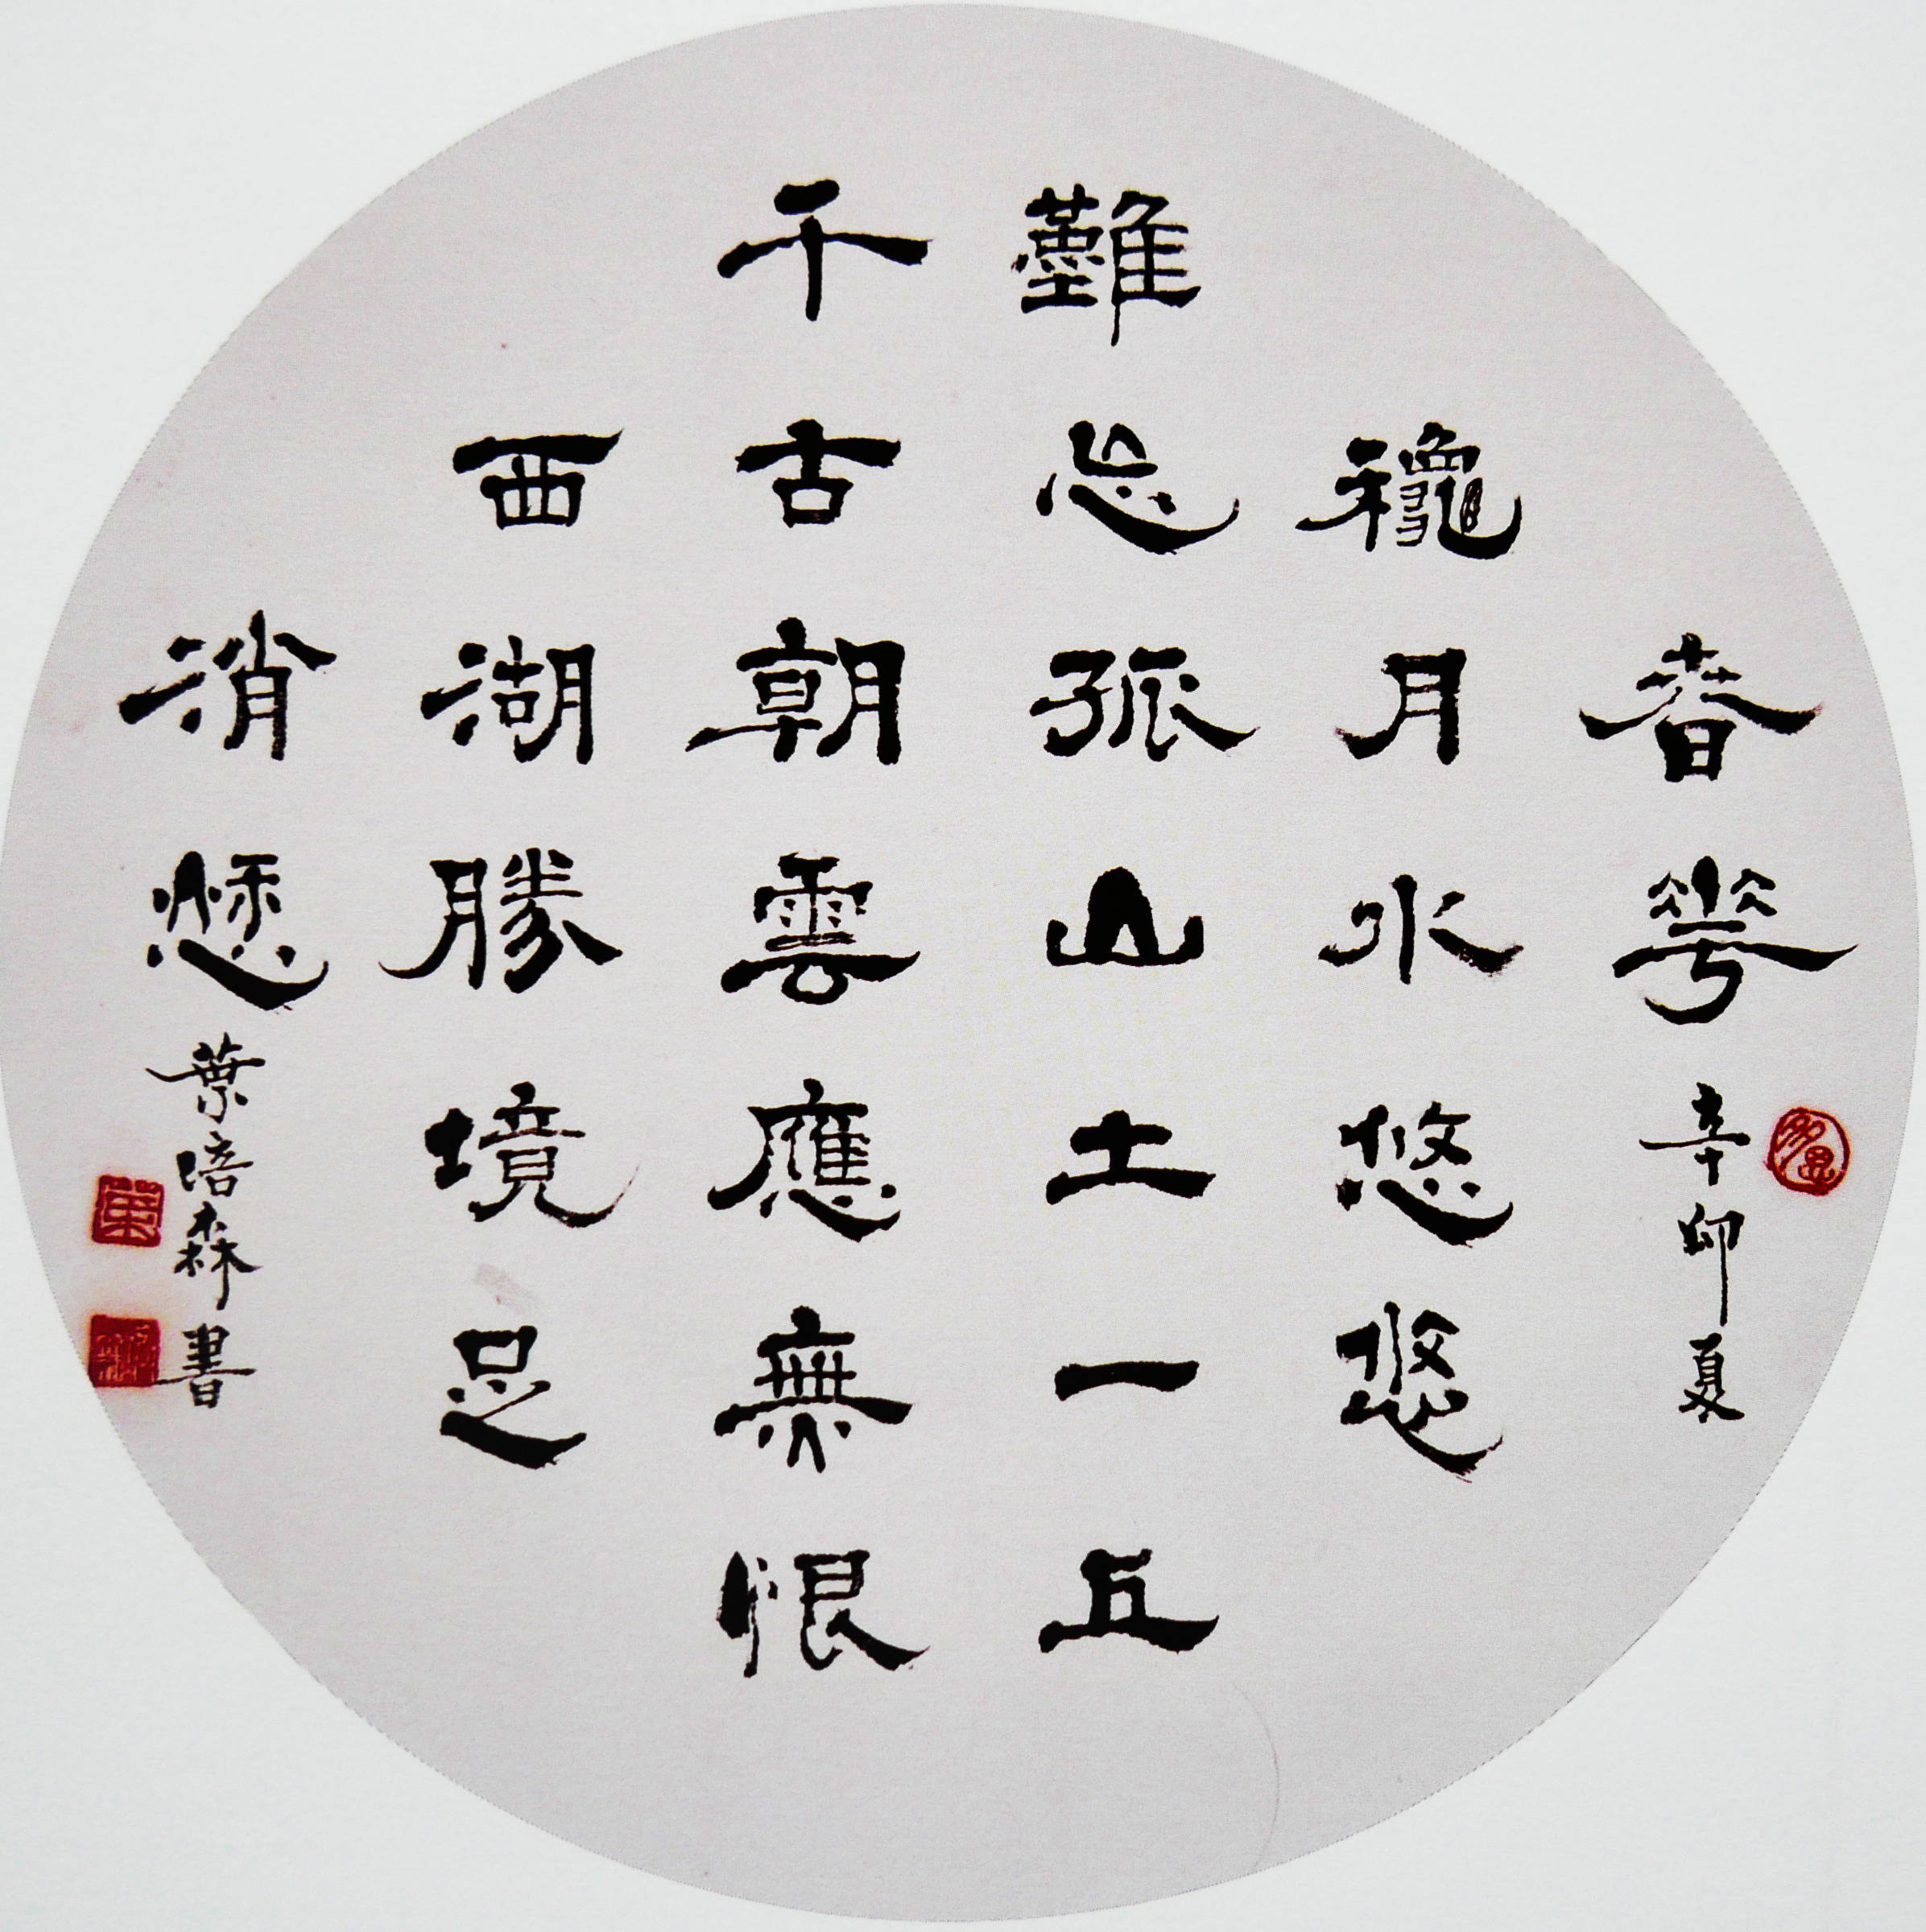 春華
辛卯夏
龝月水悠悠
難忘孤山土一丘
千古朝雲應無恨
西湖勝境足
消愁
葉培森書
葉